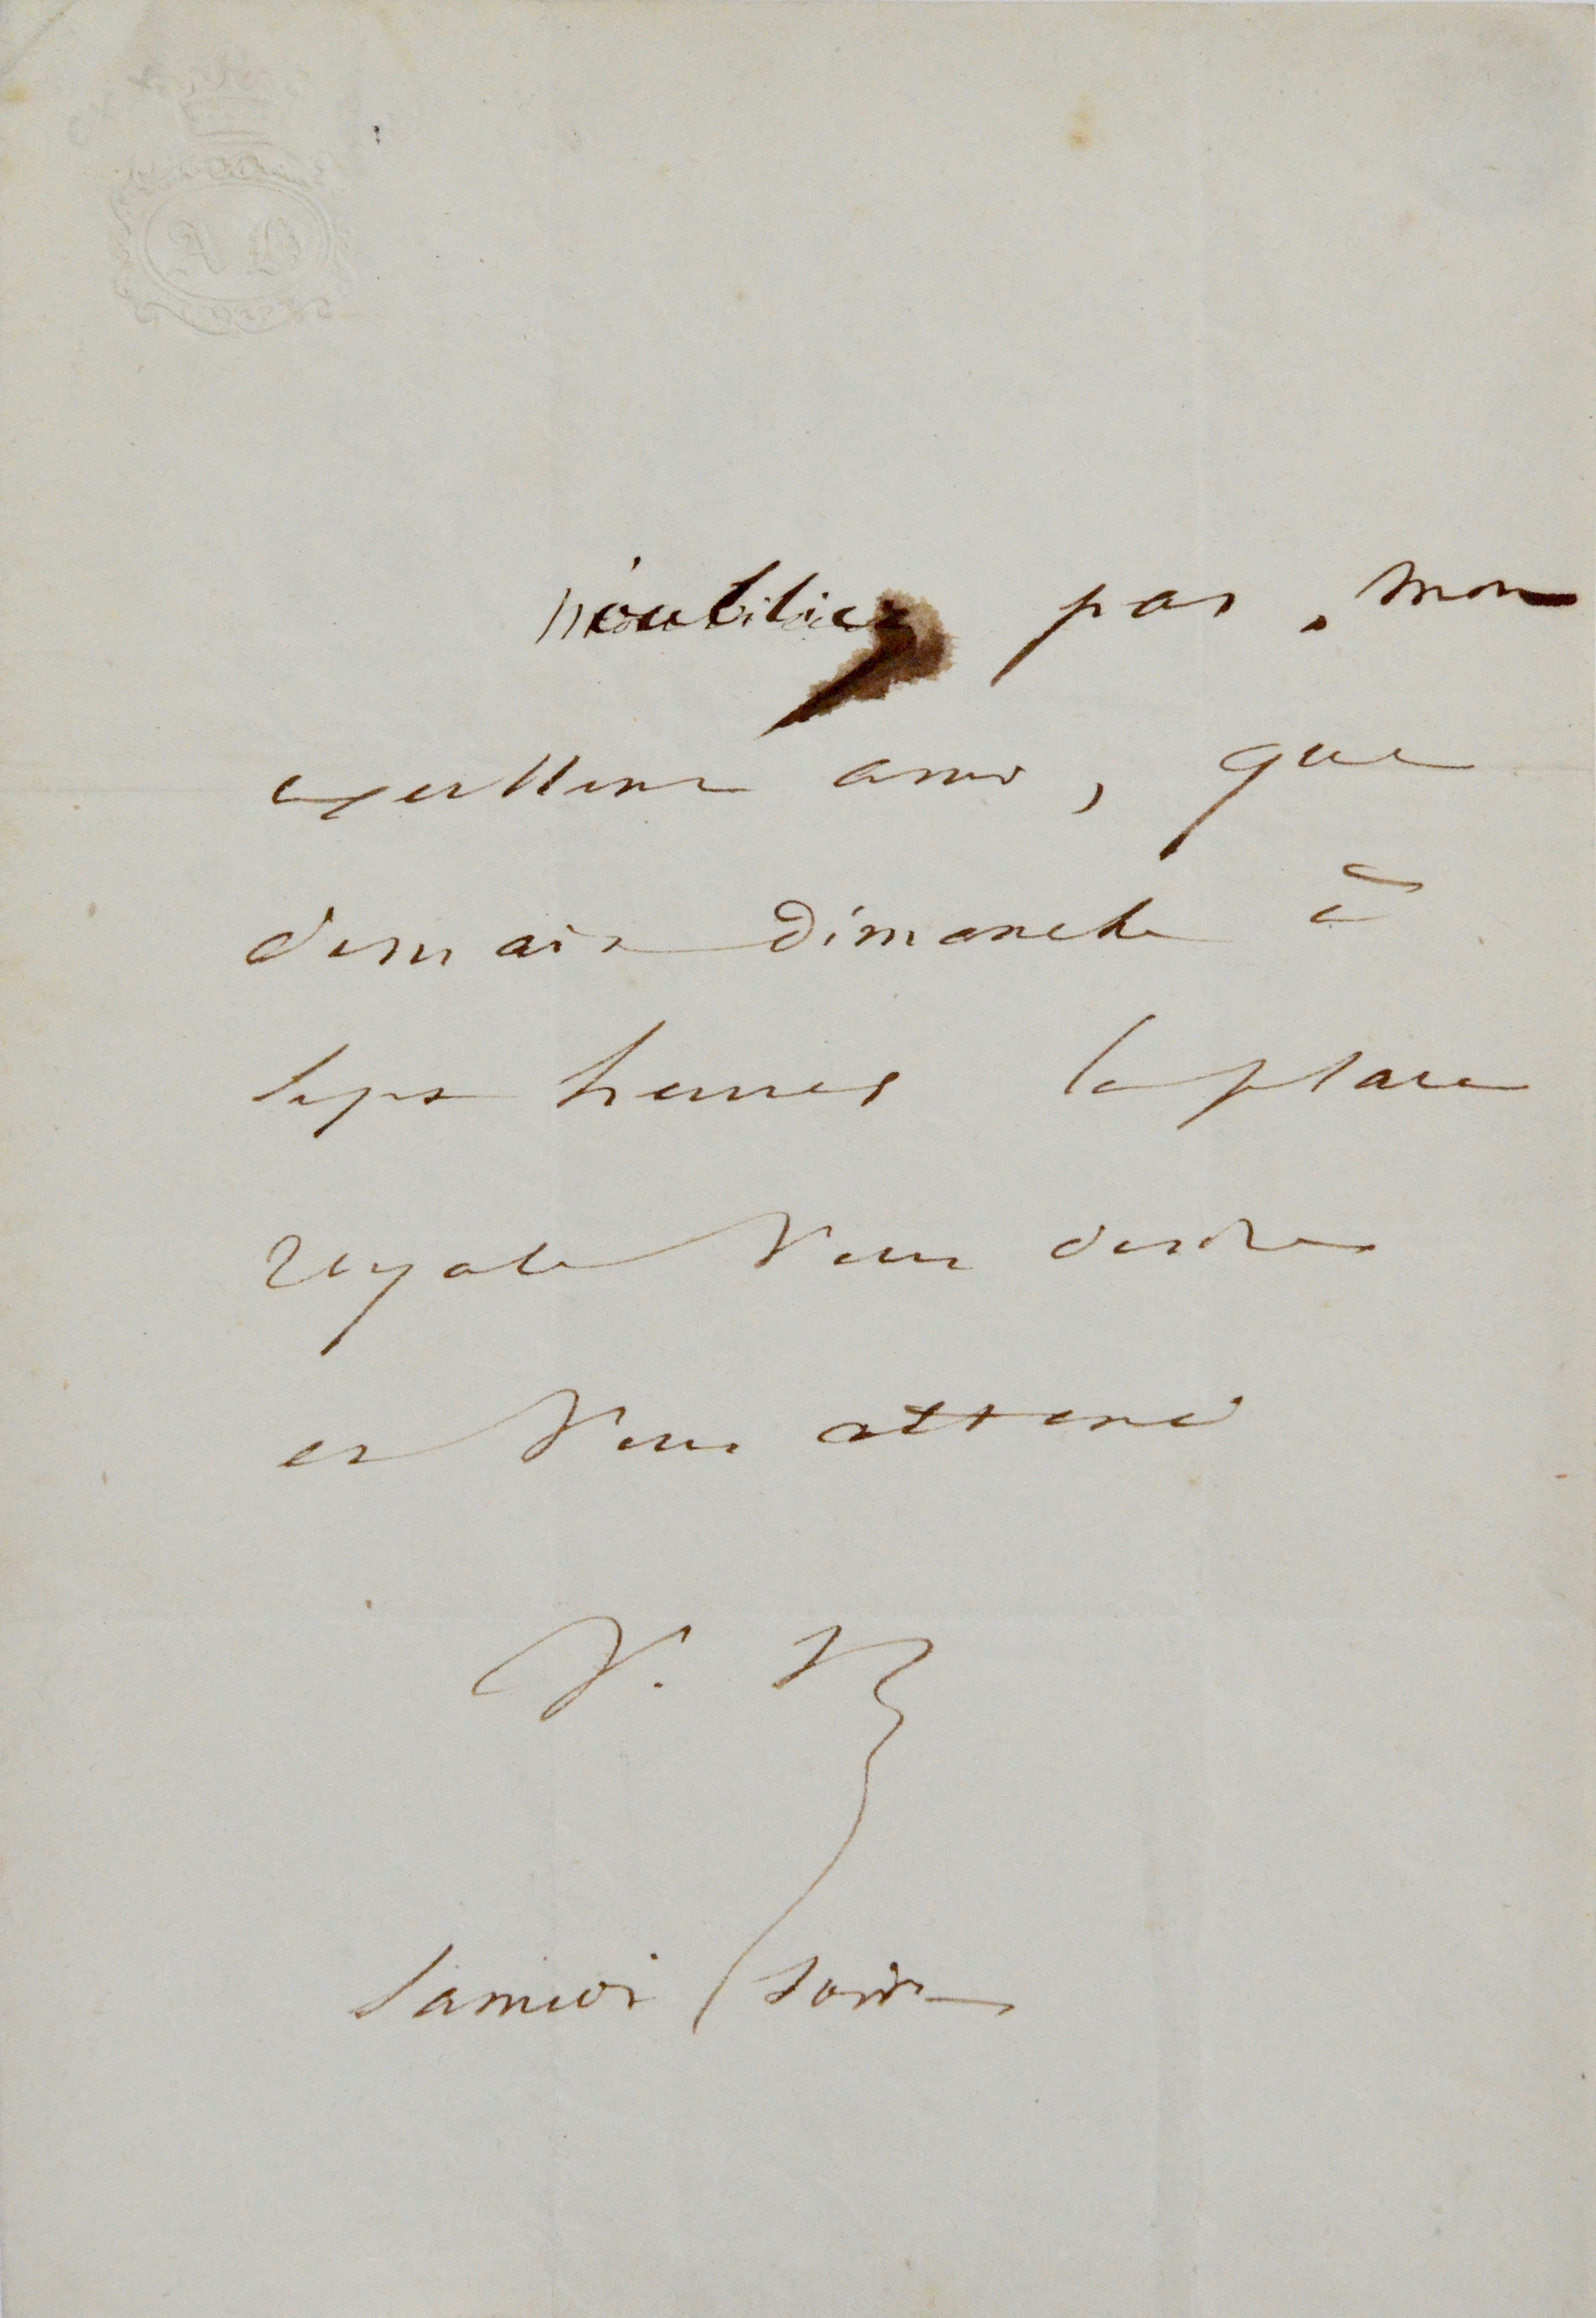 A H
n'oubliez pas, mon
excellent ami, que
demain dimanche à
sept heures la place
royale vous désire
et vous attend
V. H
samedi soir